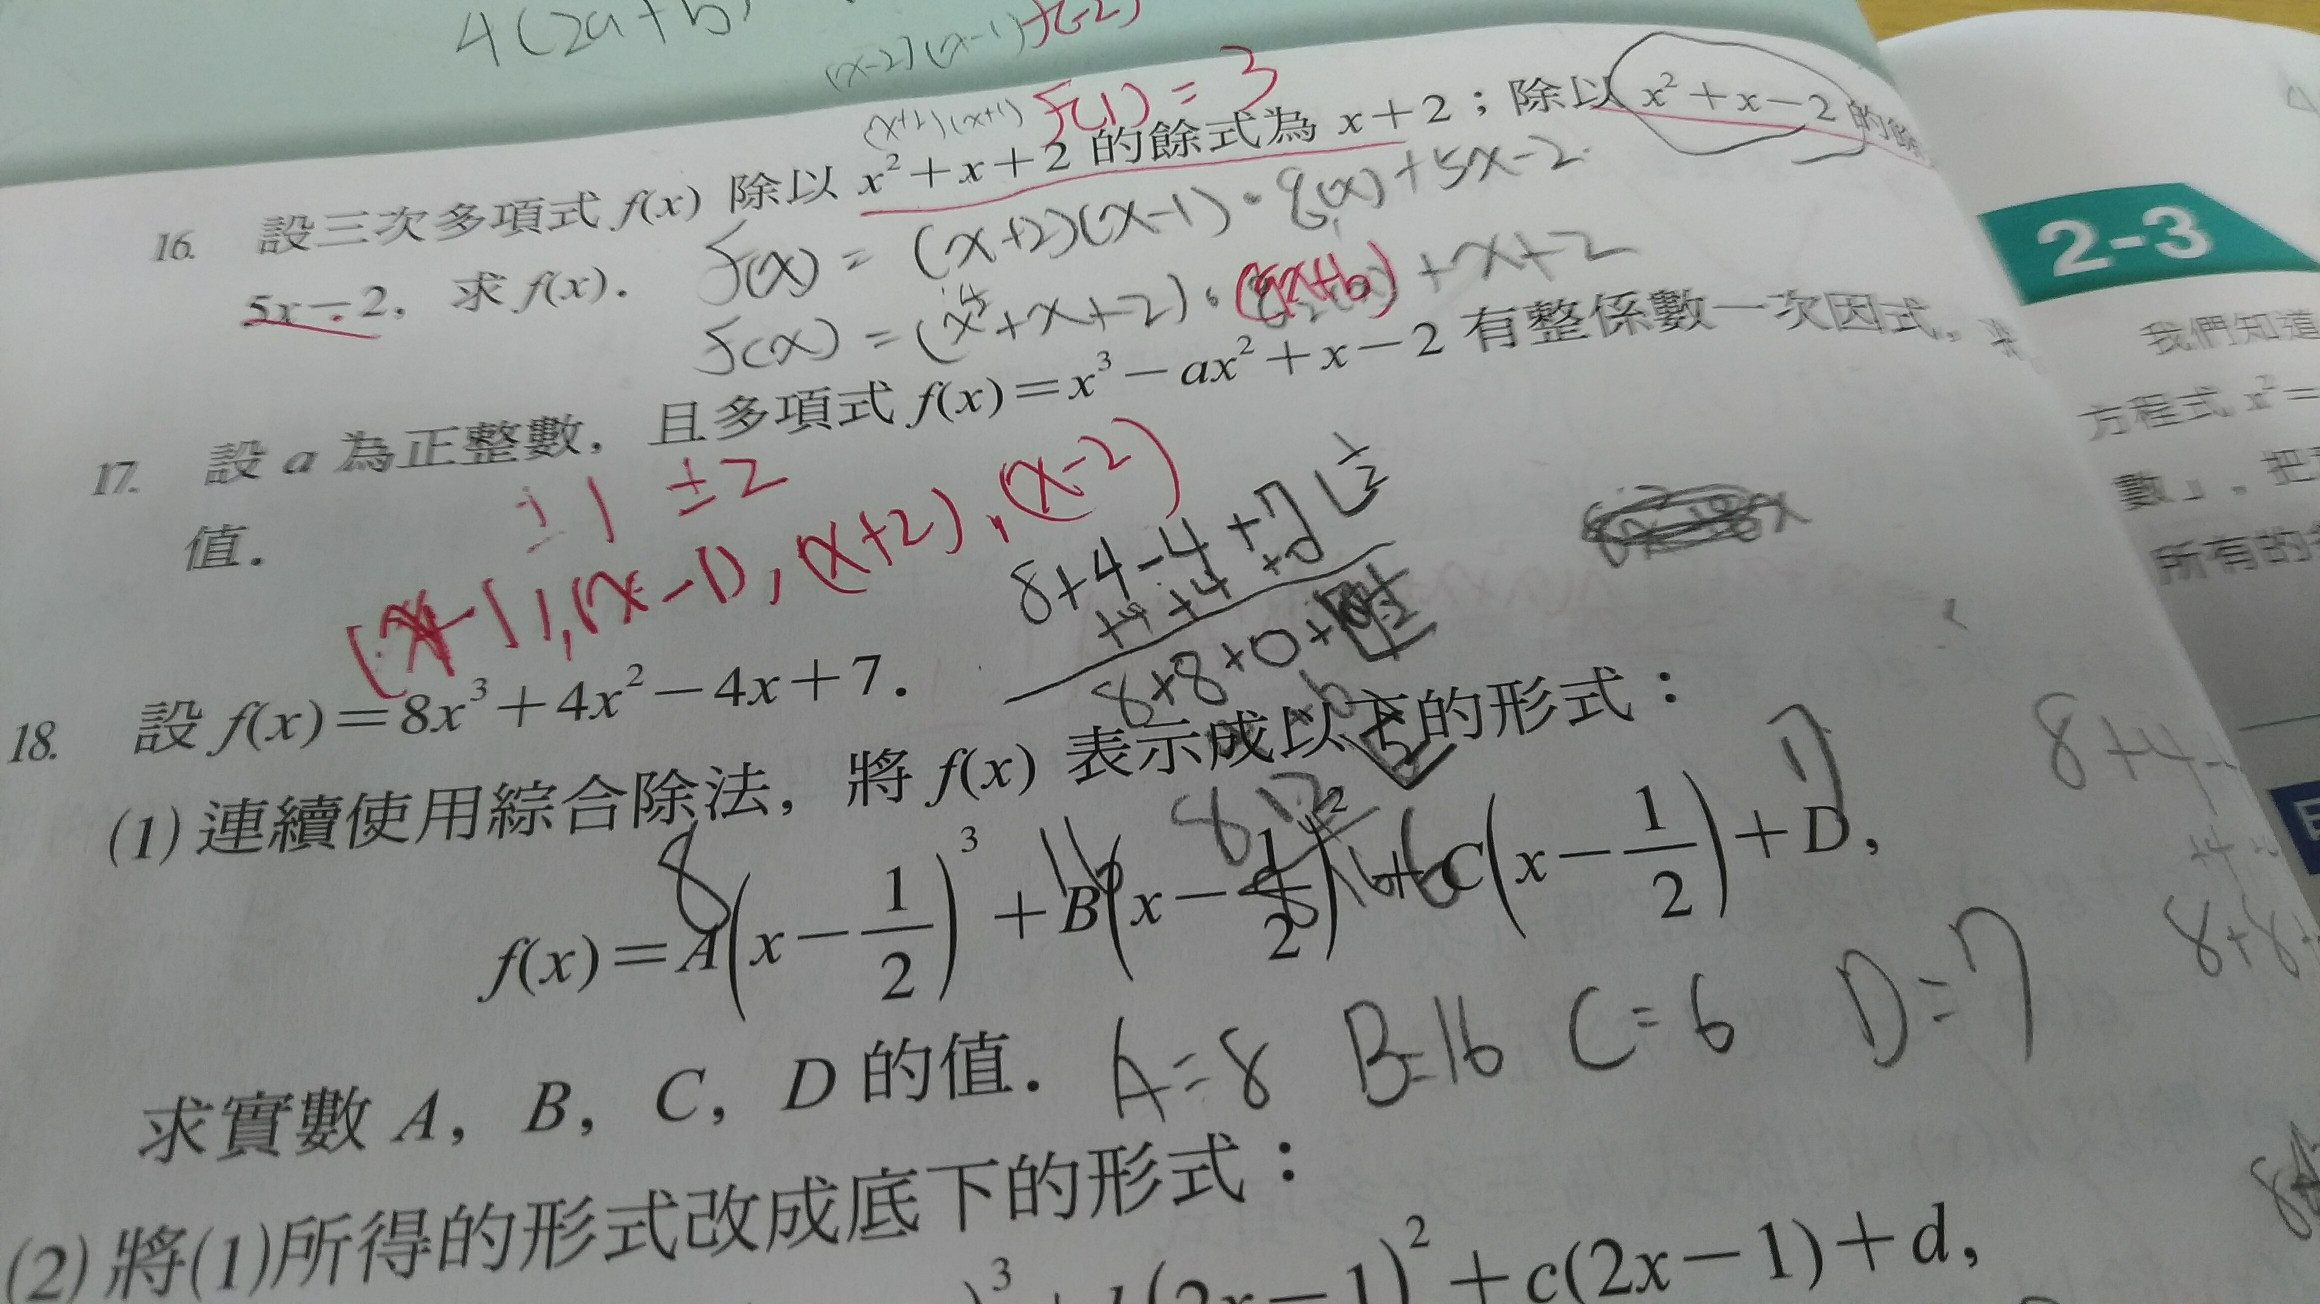 4(2a+b)
(x-2)(x-1)+(-2)
(x+2)(x+1) f(1)=3
16. 設三次多項式 f(x) 除以 x²+x+2 的餘式為 x+2；除以 x²+x-2 的餘
f(x) = (x+2)(x-1)·q(x)+5x-2
5x-2，求 f(x)．
f(x) = (x²+x+2)·(ax+b)+x+2
17. 設 a 為正整數，且多項式 f(x)=x³-ax²+x-2 有整係數一次因式，求
值．
±1 ±2
(x-1),(x-1),(x+2),(x-2)
8+4-4+7
+4+4+0
8+8+0+7
18. 設 f(x)=8x³+4x²-4x+7．
(1) 連續使用綜合除法，將 f(x) 表示成以下的形式：
8 16 6 7
f(x)=A(x-1/2)³+B(x-1/2)²+C(x-1/2)+D,
求實數 A，B，C，D 的值．
A=8 B=16 C=6 D=7
(2) 將(1)所得的形式改成底下的形式：
)³+b(2x-1)²+c(2x-1)+d,
2-3
我們知道
方程式 x²=
數」，把
所有的
8+4-
8+8+